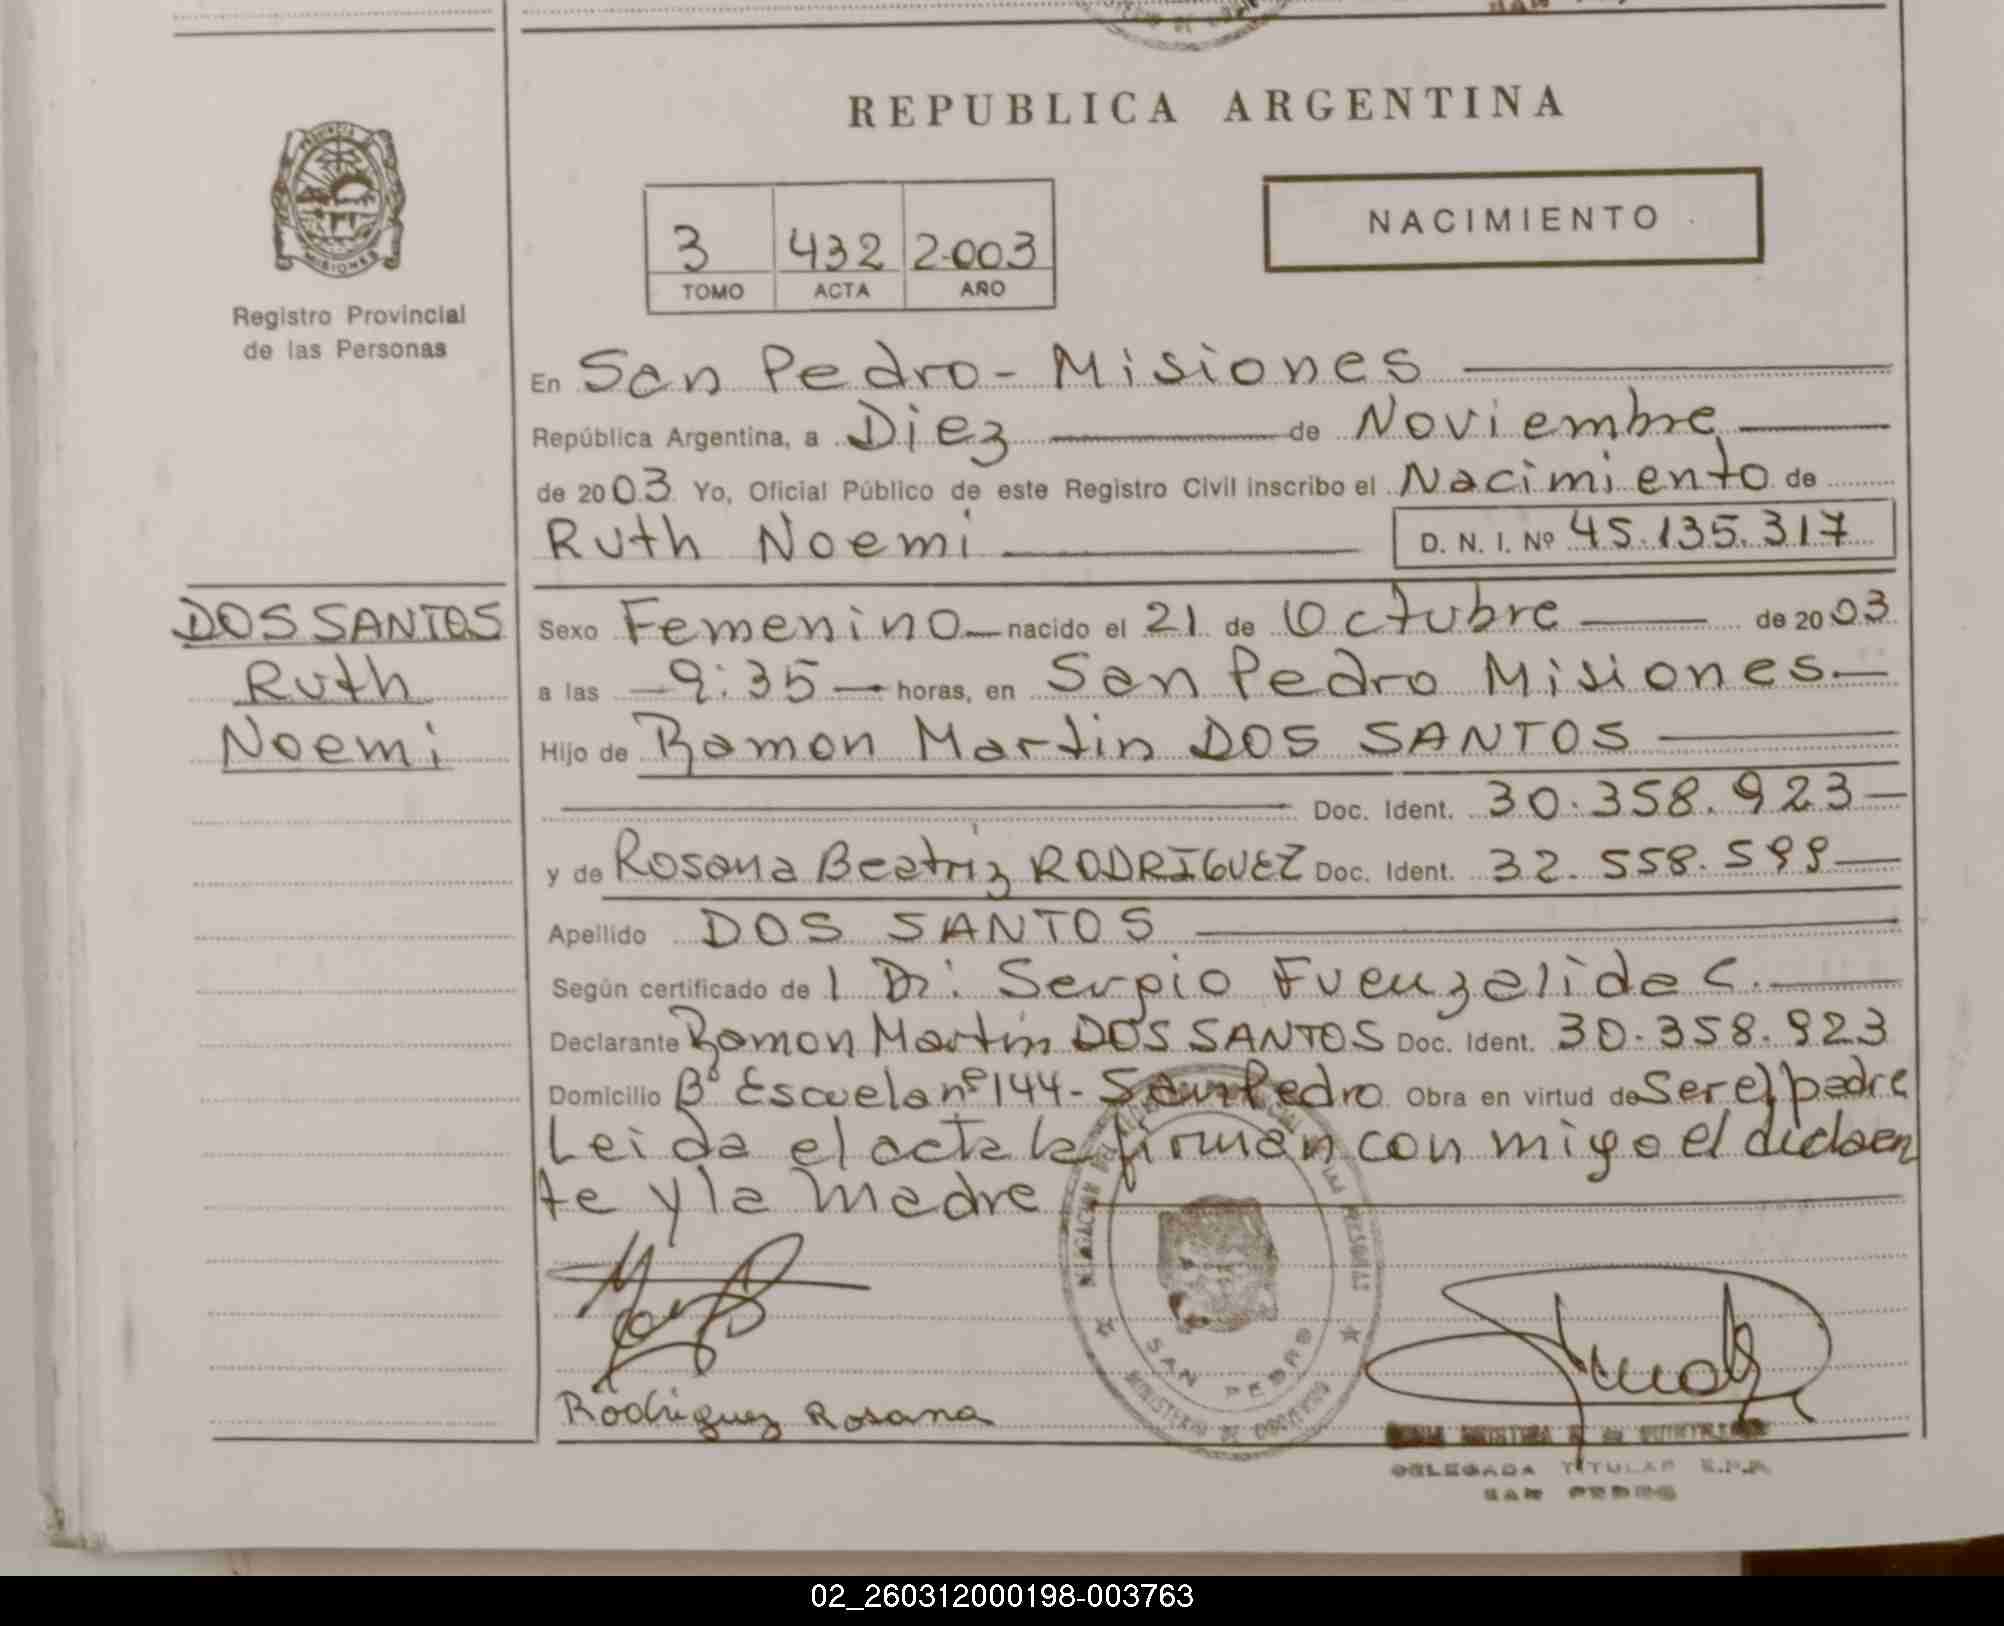 REPUBLICA ARGENTINA
PROVINCIA
MISIONES
Registro Provincial
de las Personas
3 432 2.003
TOMO ACTA AÑO
NACIMIENTO
En San Pedro - Misiones
República Argentina, a Diez de Noviembre
de 2003 Yo, Oficial Público de este Registro Civil inscribo el Nacimiento de
Ruth Noemi D. N. I. Nº 45.135.317
DOS SANTOS
Ruth
Noemi
Sexo Femenino nacido el 21 de Octubre de 2003
a las 9:35 horas, en San Pedro Misiones
Hijo de Ramon Martin DOS SANTOS
Doc. Ident. 30.358.923
y de Rosana Beatriz RODRIGUEZ Doc. Ident. 32.558.599
Apellido DOS SANTOS
Según certificado de l Dr: Sergio Fuenzalida C.
Declarante Ramon Martin DOS SANTOS Doc. Ident. 30.358.923
Domicilio Bº Escuela nº 144 - San Pedro Obra en virtud de Ser el padre
Leida el acta la firman con migo el declaen
te y la madre
SAN PEDRO
Rodriguez Rosana
DELEGADA TITULAR R.P.P.
SAN PEDRO
02_260312000198-003763